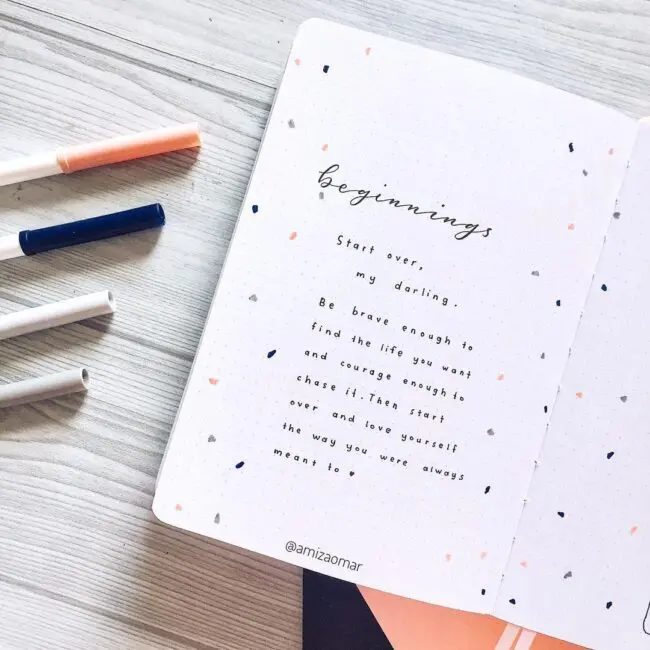 beginnings
Start over,
my darling.
Be brave enough to
find the life you want
and courage enough to
chase it. Then start
over and love yourself
the way you were always
meant to ♥
@amizaomar